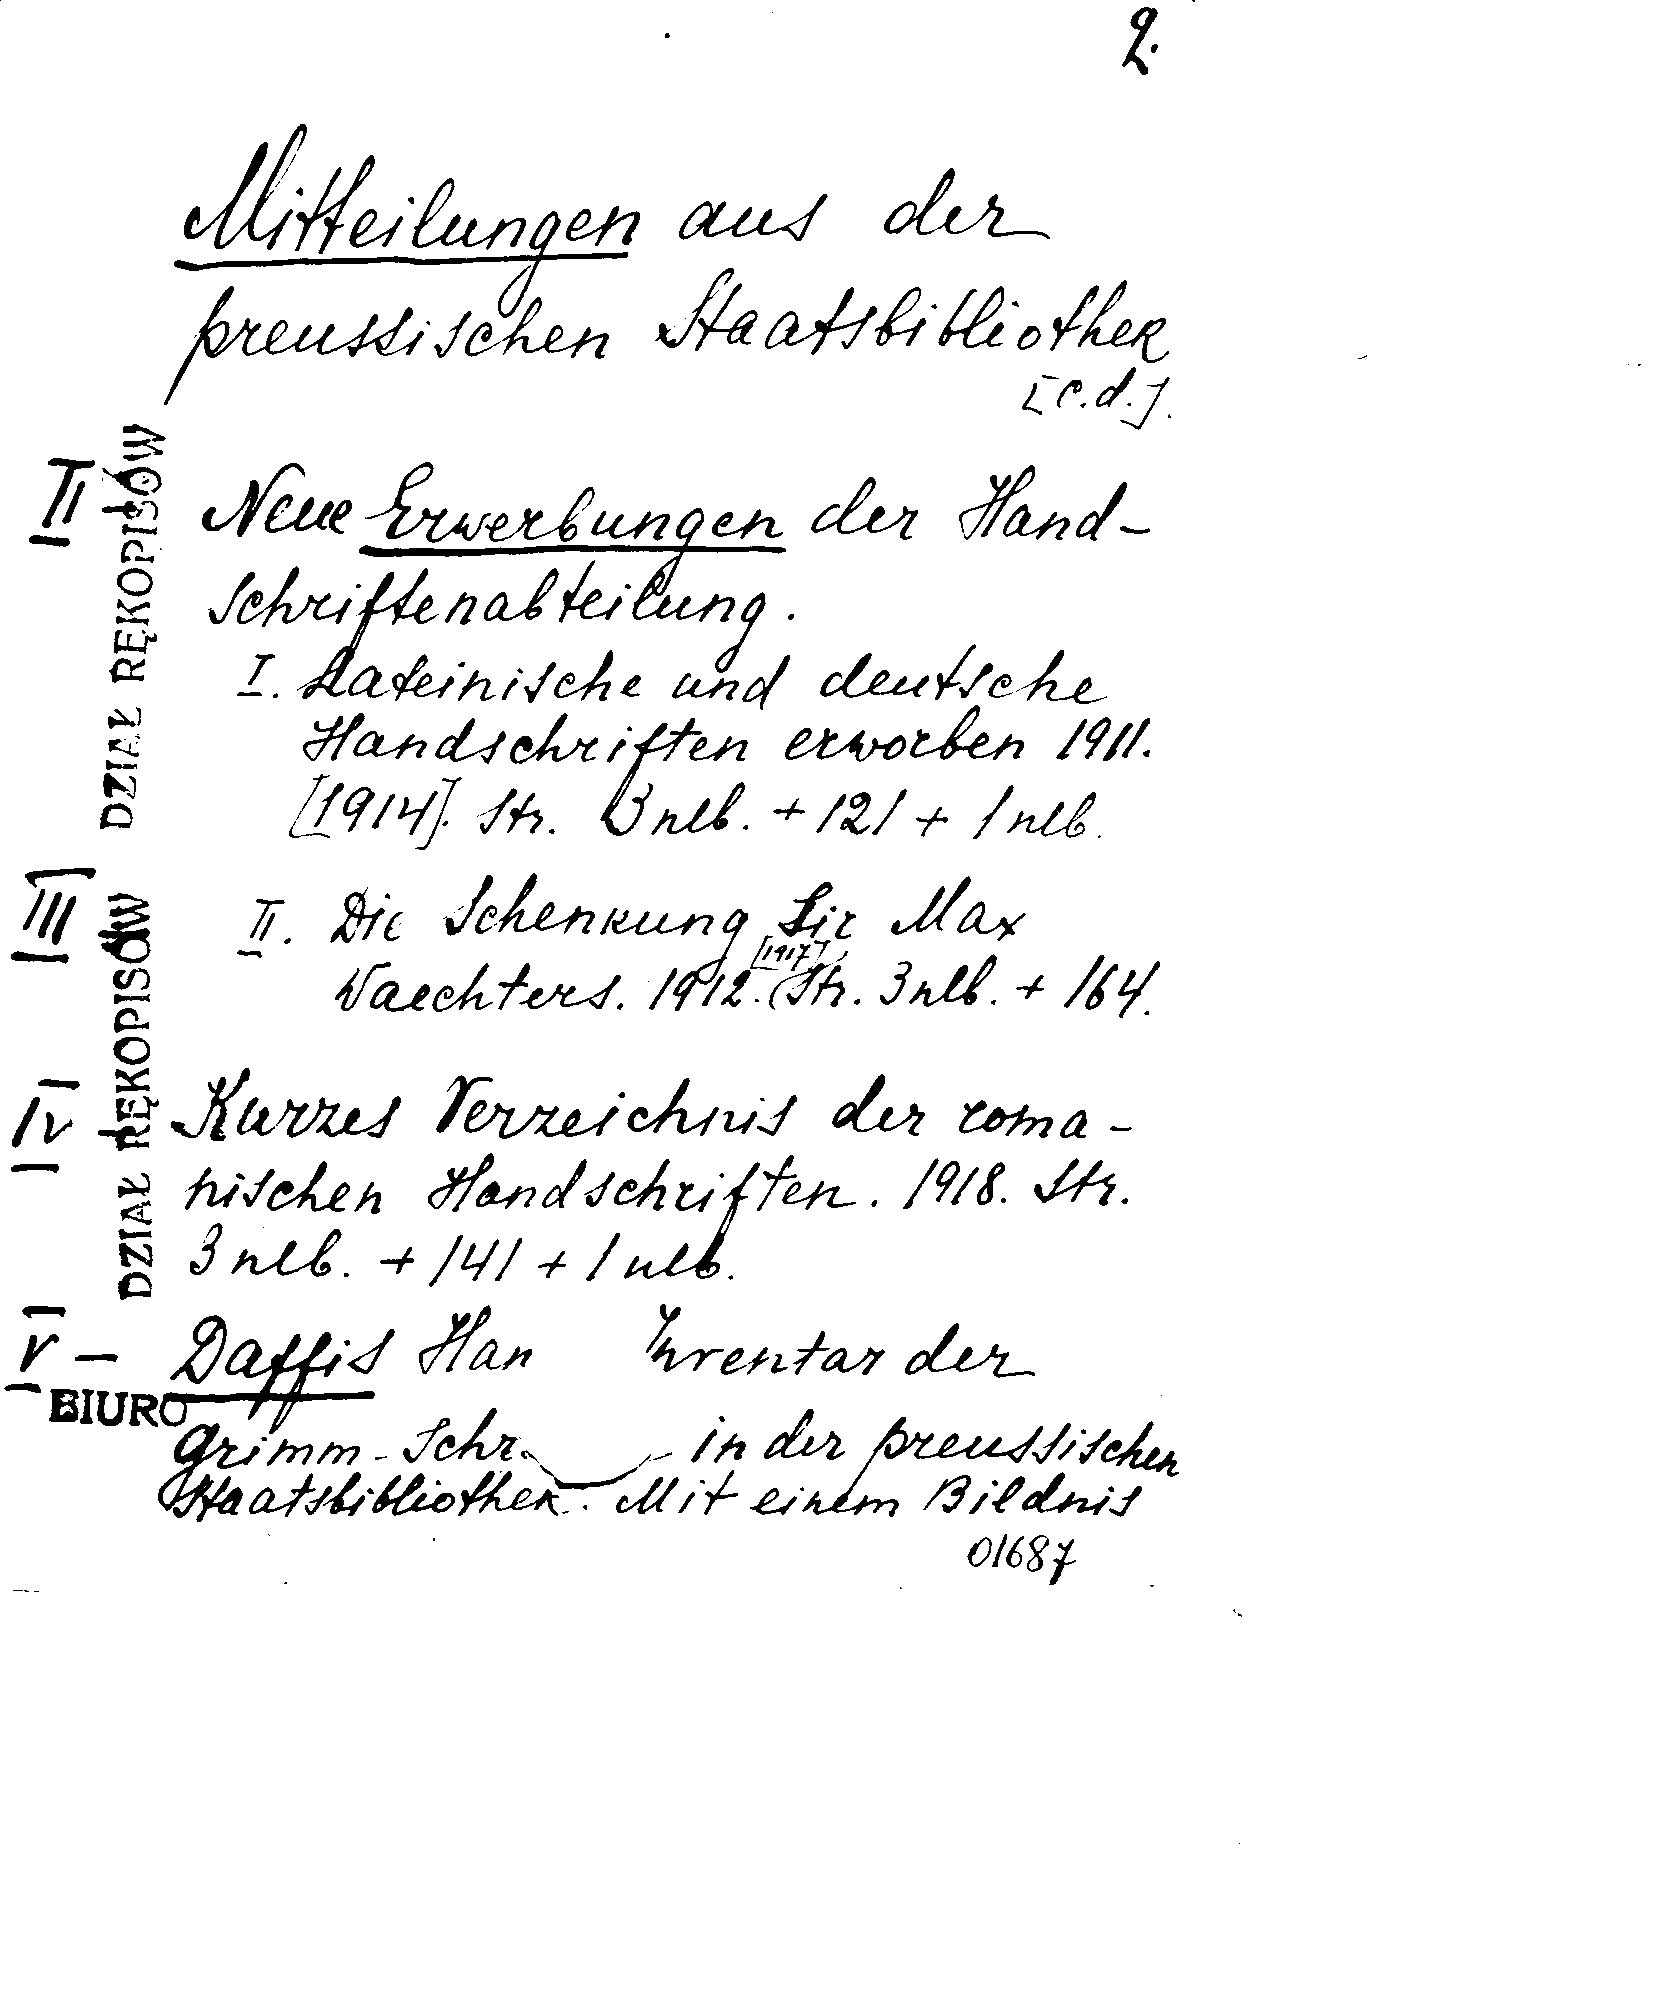 2.
Mitteilungen aus der
preussischen Staatsbibliothek
[c.d.].
II Neue Erwerbungen der Hand-
schriftenabteilung.
I. Lateinische und deutsche
Handschriften erworben 1911.
[1914]. Str. 3 nlb. + 121 + 1 nlb.
III II. Die Schenkung Sir Max
[1917]
Waechters. 1912. Str. 3 nlb. + 164.
IV Kurzes Verzeichnis der roma-
nischen Handschriften. 1918. Str.
3 nlb. + 141 + 1 nlb.
V — Daffis Han Inventar der
Grimm-Schr. in der preussischen
Staatsbibliothek. Mit einem Bildnis
01687
DZIAŁ RĘKOPISÓW
DZIAŁ RĘKOPISÓW
BIURO